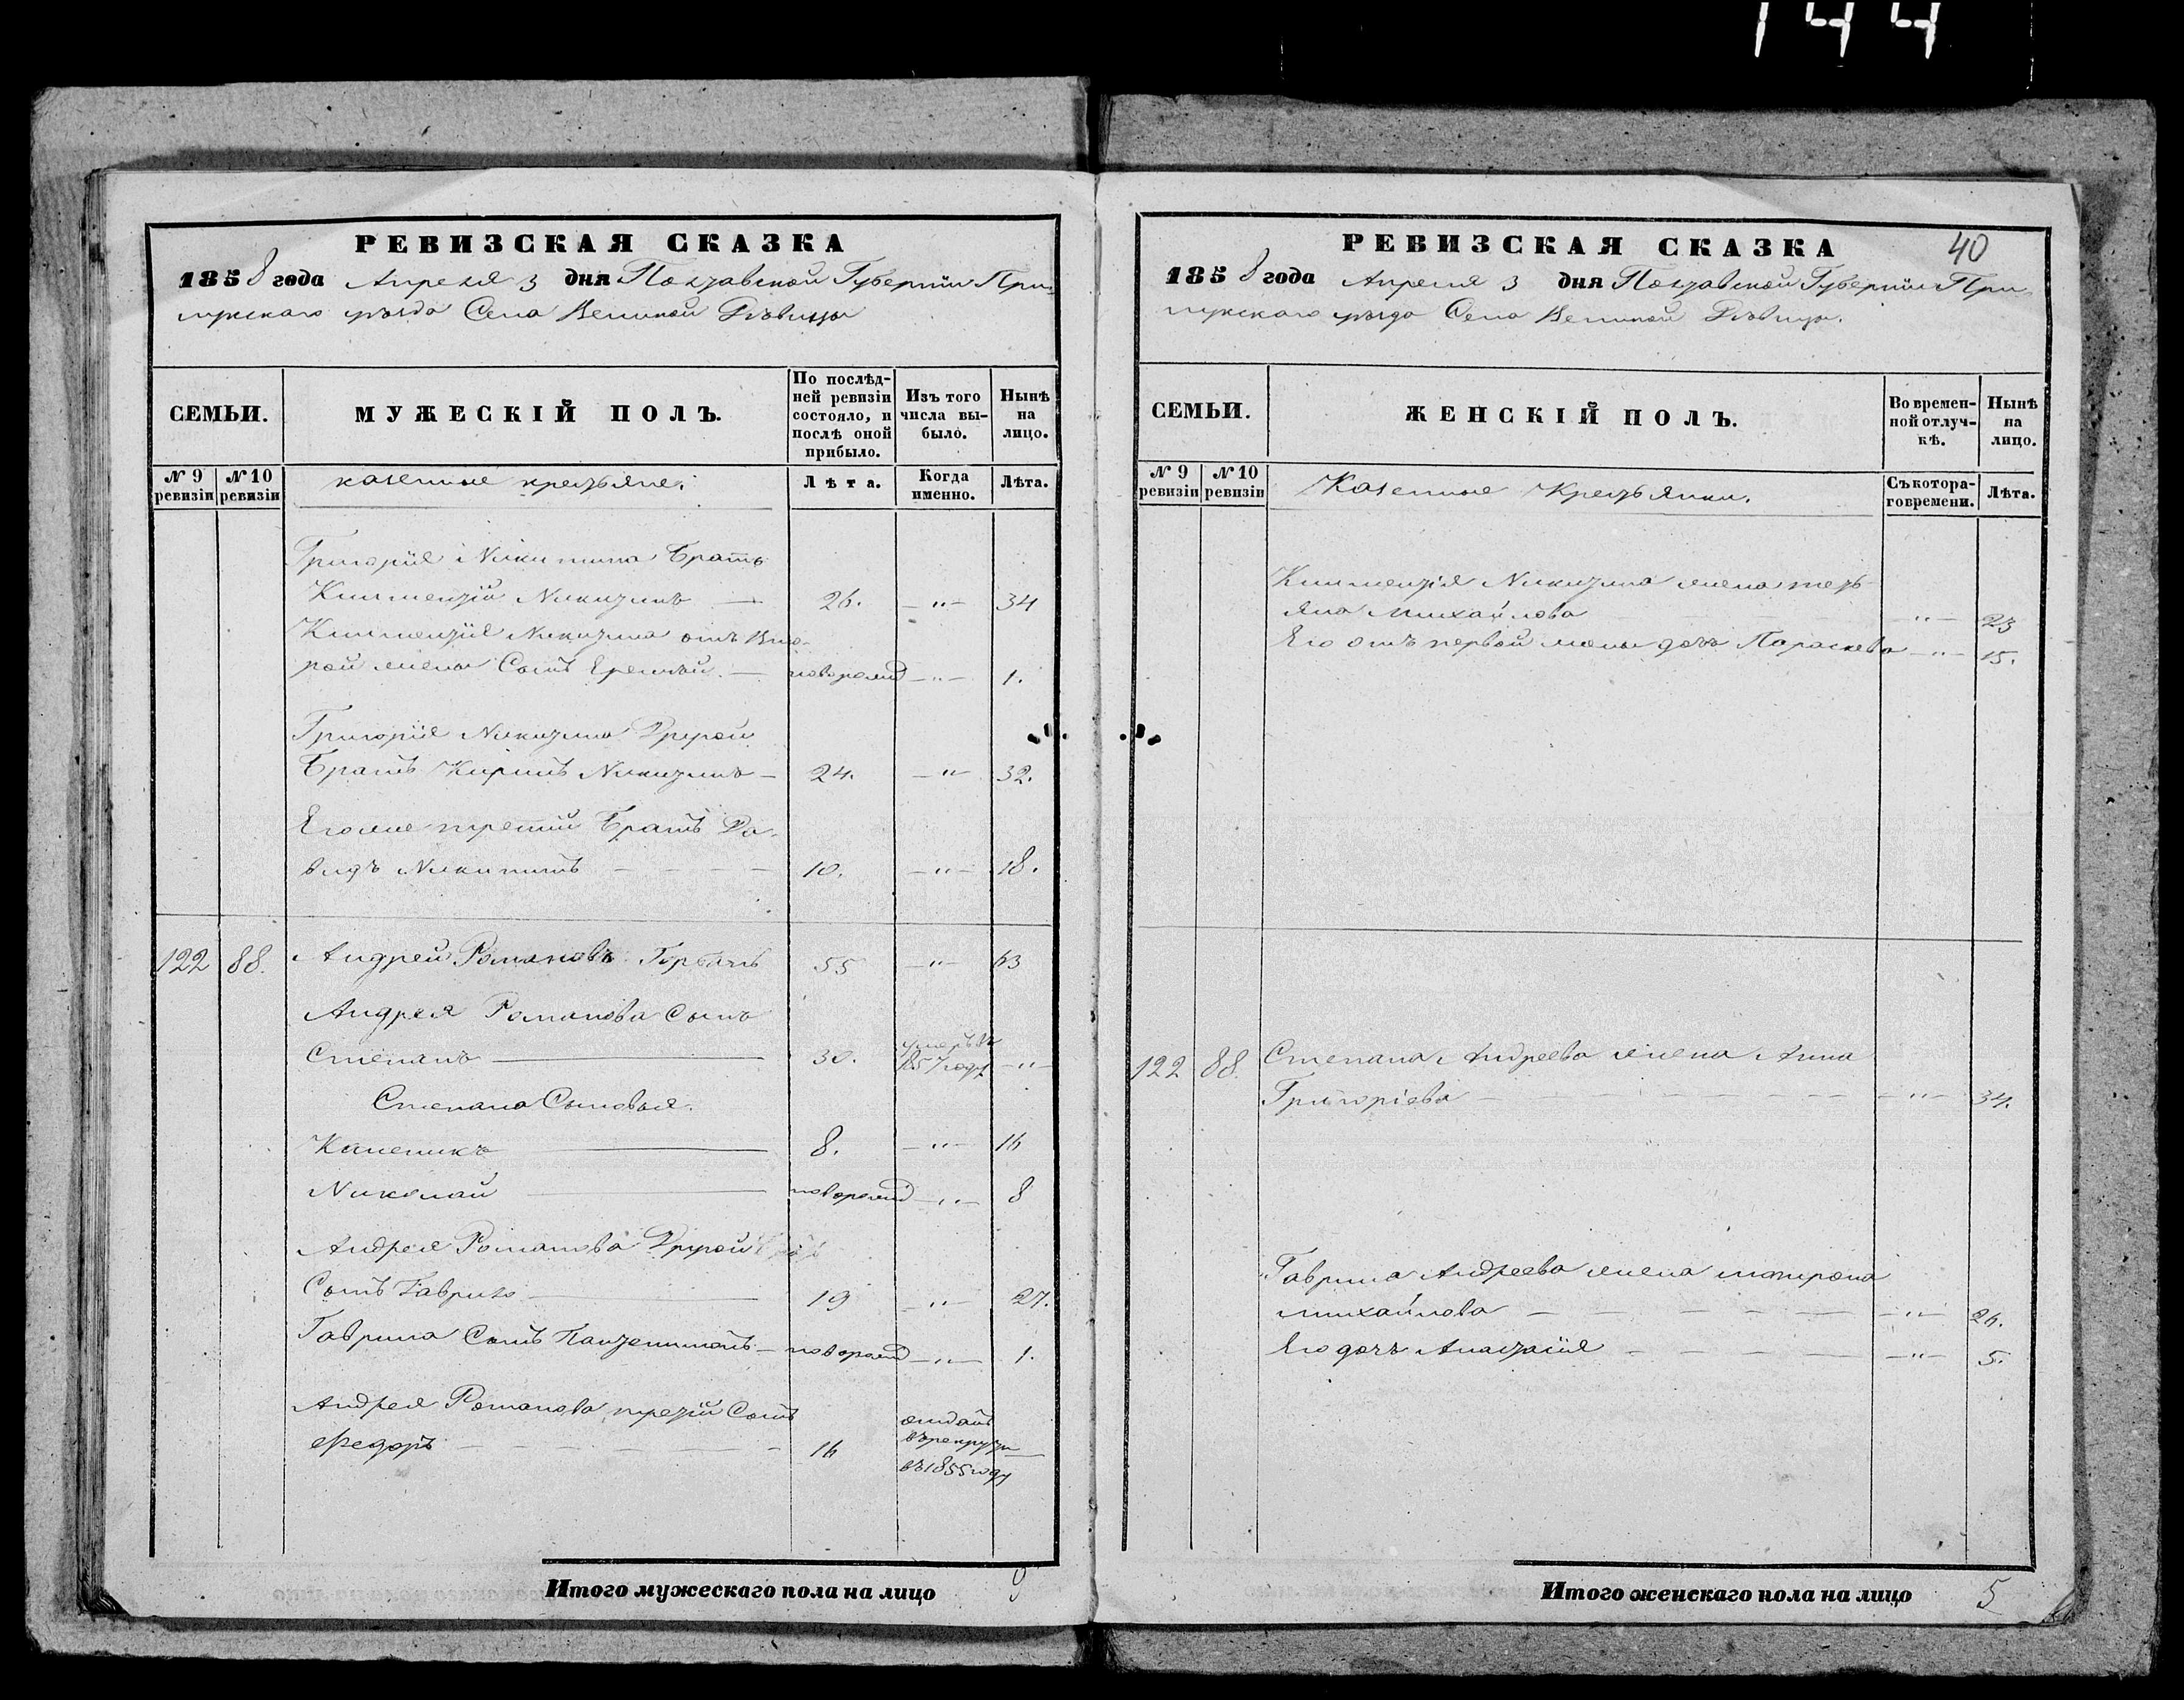 144
РЕВИЗСКАЯ СКАЗКА
1858 года Апреля 3 дня Полтавской Губернии При-
лукскаго уѣзда Села Великой Дѣвицы
СЕМЬИ.
МУЖЕСКІЙ ПОЛЪ.
По послѣд-
ней ревизіи
состояло, и
послѣ оной
прибыло.
Изъ того
числа вы-
было.
Нынѣ
на
лицо.
№ 9
ревизіи
№ 10
ревизіи
казенные крестьяне.
Лѣта.
Когда
именно.
Лѣта.
Григорія Никитина Братъ
Климентій Никитинъ — 26. —"— 34
Климентія Никитина отъ Вто-
рой жены Сынъ Еремѣй. — новорожд —"— 1.
Григорія Никитина Другой
Братъ Кирилъ Никитинъ — 24. —"— 32.
Его же третій Братъ Да-
видъ Никитинъ — 10. —"— 18.
122 88. Андрей Романовъ Горбачъ 55 —"— 63
Андрея Романова Сынъ
Степанъ — 30. умеръ въ 1857 году —"—
Степана Сыновья.
Каленикъ — 8. —"— 16
Николай — новорожд —"— 8
Андрея Романова Другой
Сынъ Гаврило — 19 —"— 27.
Гаврила Сынъ Пантелимонъ — новорожд —"— 1.
Андрея Романова третій Сынъ
Федоръ — 16 отданъ
в рекруты —
въ 1855 году
Итого мужескаго пола на лицо 9
РЕВИЗСКАЯ СКАЗКА 40
1858 года Апреля 3 дня Полтавской Губерніи При-
лукскаго уѣзда Села Великой Дѣвицы.
СЕМЬИ.
ЖЕНСКІЙ ПОЛЪ.
Во времен-
ной отлуч-
кѣ.
Нынѣ
на
лицо.
№ 9
ревизіи
№ 10
ревизіи
Казенные Крестьянки.
Съ котора-
го времени.
Лѣта.
Климентія Никитина жена Тать-
яна Михайлова —"— 23
Его отъ первой жены дочь Параскева —"— 15.
122 88. Степана Андреева жена Анна
Григоріева — —"— 34.
Гаврила Андреева жена Матрона
Михайлова — —"— 26.
Его дочь Анастасія — —"— 5.
Итого женскаго пола на лицо 5